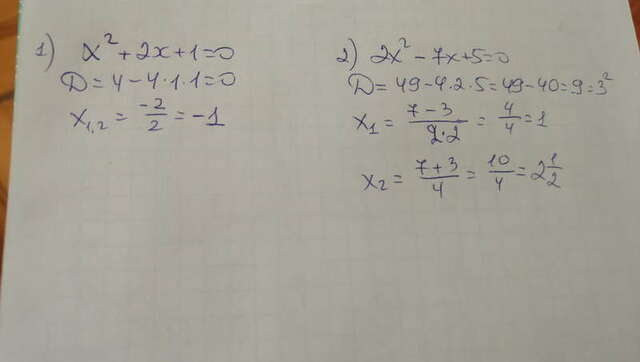 1) x² + 2x + 1 = 0
D = 4 - 4·1·1 = 0
x₁,₂ = -2/2 = -1
2) 2x² - 7x + 5 = 0
D = 49 - 4·2·5 = 49 - 40 = 9 = 3²
x₁ = (7 - 3)/(2·2) = 4/4 = 1
x₂ = (7 + 3)/4 = 10/4 = 2 1/2